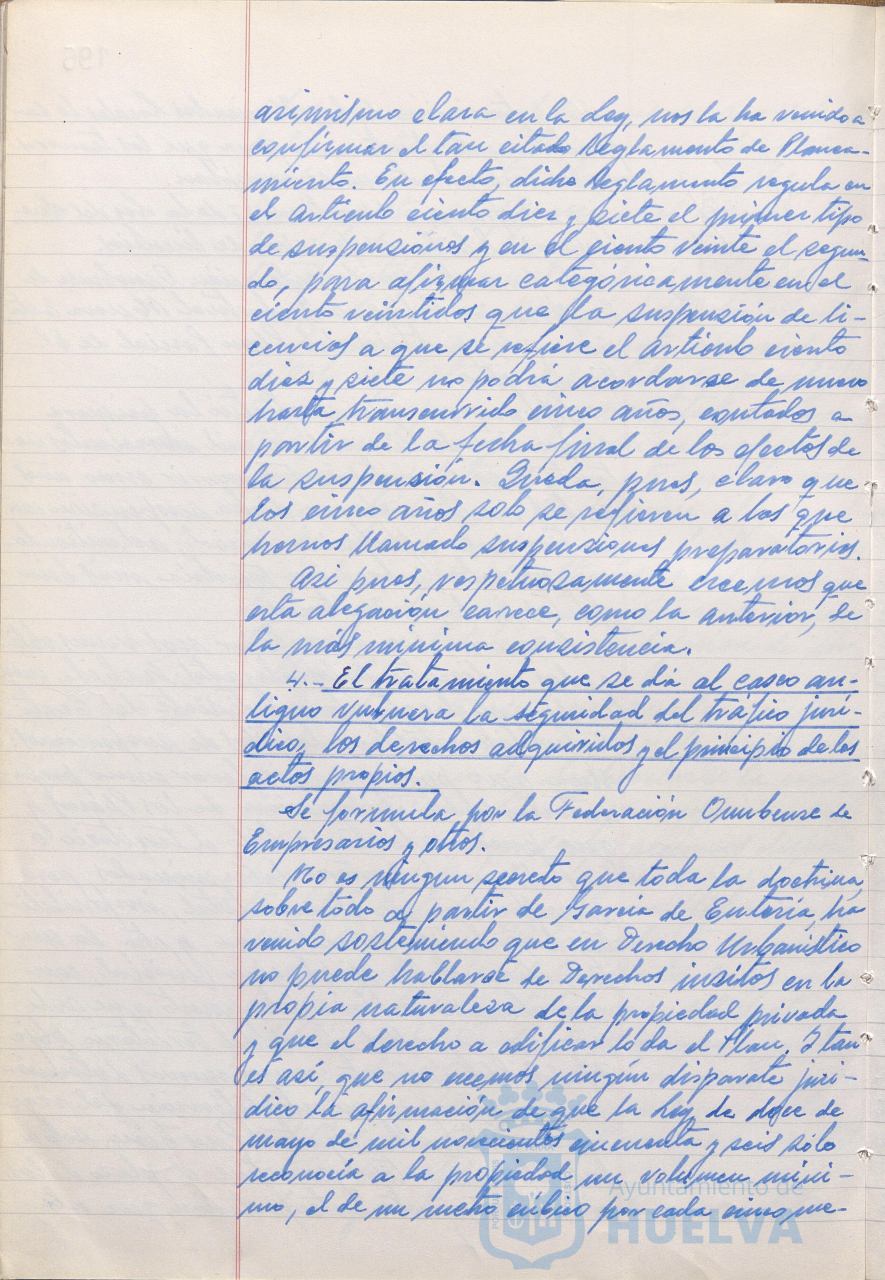 asimismo clara en la Ley, nos la ha venido a
confirmar el tan citado Reglamento de Planea-
miento. En efecto, dicho Reglamento regula en
el artículo ciento diez y siete el primer tipo
de suspensiones y en el ciento veinte el segun-
do, para afirmar categóricamente en el
ciento veintidos que la suspensión de li-
cencias a que se refiere el artículo ciento
diez y siete no podrá acordarse de nuevo
hasta transcurrido cinco años, contados a
partir de la fecha final de los efectos de
la suspensión. Queda, pues, claro que
los cinco años solo se refieren a las que
hemos llamado suspensiones preparatorias.
Asi pues, respetuosamente creemos que
esta alegación carece, como la anterior, de
la más mínima consistencia.
4.- El tratamiento que se da al casco an-
tiguo vulnera la seguridad del tráfico jurí-
dico, los derechos adquiridos y el principio de los
actos propios.
Se formula por la Federación Onubense de
Empresarios y otros.
No es ningun secreto que toda la doctrina,
sobre todo a partir de Garcia de Enterría, ha
venido sosteniendo que en Derecho Urbanístico
no puede hablarse de Derechos insitos en la
propia naturaleza de la propiedad privada
y que el derecho a edificar lo da el Plan. Y tan
es así, que no creemos ningún disparate jurí-
dico la afirmación de que la Ley de doce de
mayo de mil novecientos cincuenta y seis sólo
reconocía a la propiedad un volumen míni-
mo, el de un metro cúbico por cada cinco me-
195
Ayuntamiento de
HUELVA